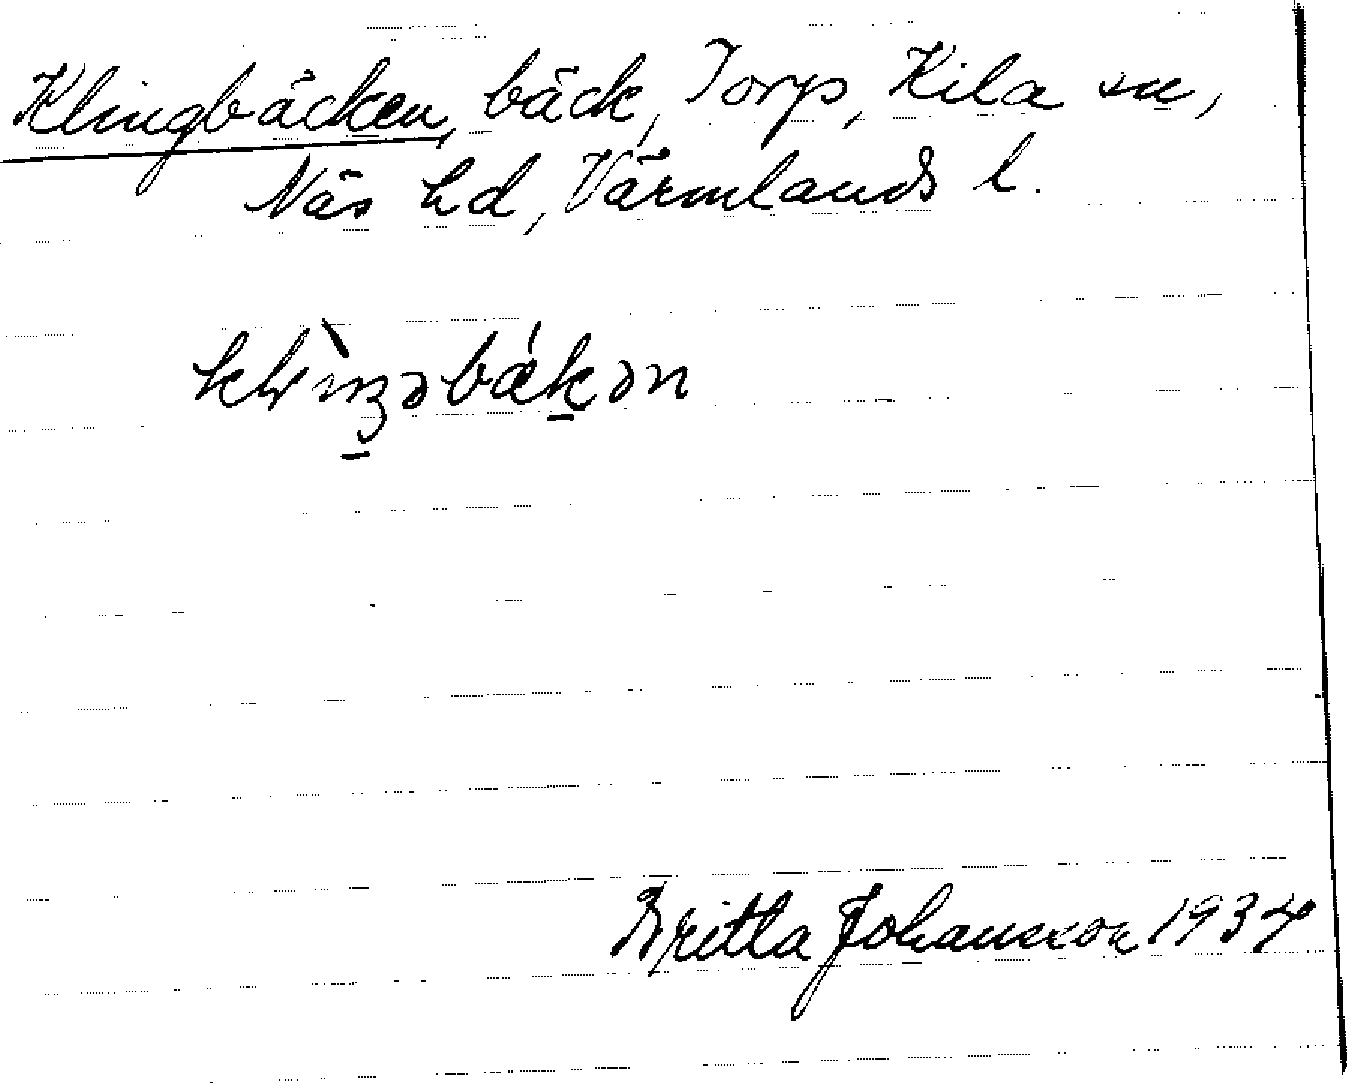 Klingbäcken, bäck, Torp, Kila sn,
Näs hd, Värmlands l.
Britta Johansson 1934